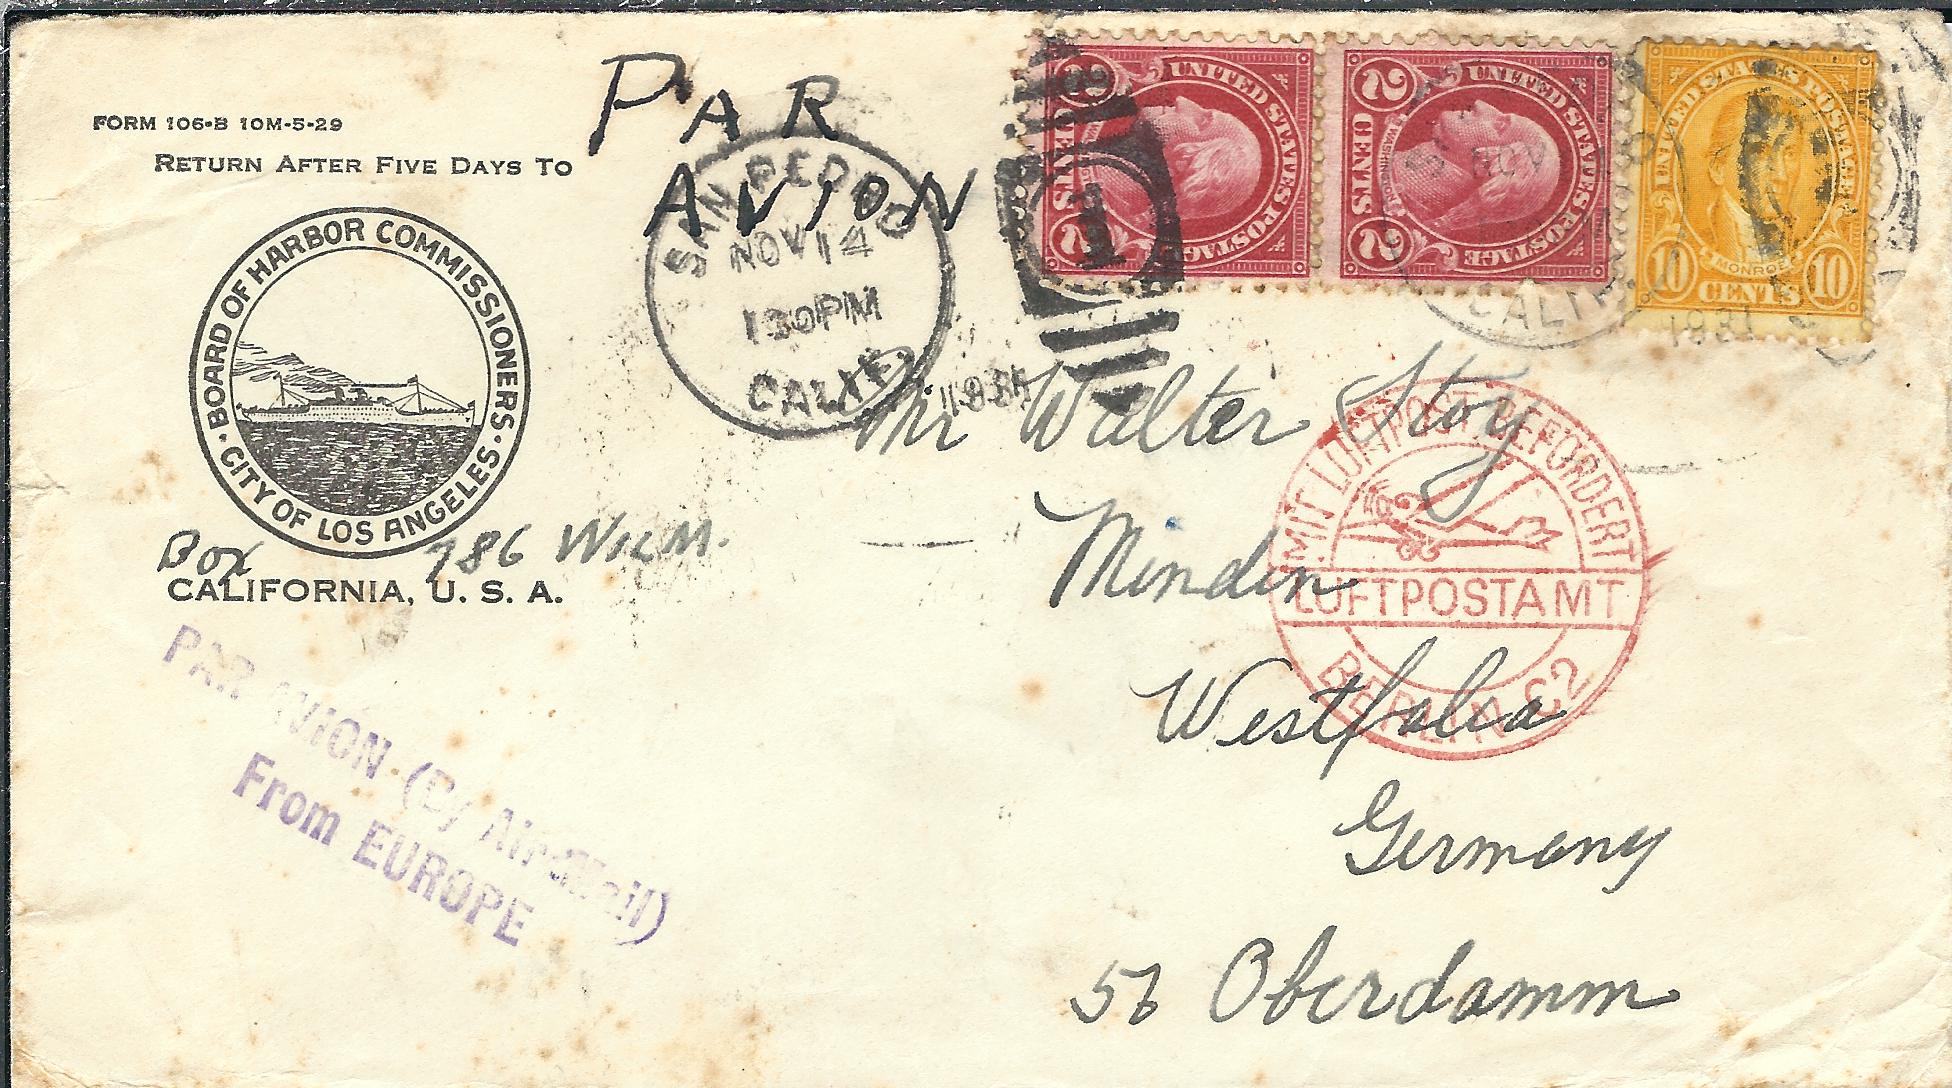 FORM 106-B 10M-5-29
RETURN AFTER FIVE DAYS TO
BOARD OF HARBOR COMMISSIONERS
CITY OF LOS ANGELES
Box 786 WILM.
CALIFORNIA, U. S. A.
PAR
AVION
SAN PEDRO
NOV 14
1 30 PM
CALIF.
1931
1
UNITED STATES POSTAGE
2 CENTS 2
UNITED STATES POSTAGE
WASHINGTON
2 CENTS 2
NOV
CALIF.
1931
UNITED STATES POSTAGE
MONROE
10 CENTS 10
Mr Walter Stoy
Minden
Westfalia
Germany
Oberdamm
MIT LUFTPOST BEFÖRDERT
LUFTPOSTAMT
BERLIN C2
PAR AVION (By Air Mail)
From EUROPE